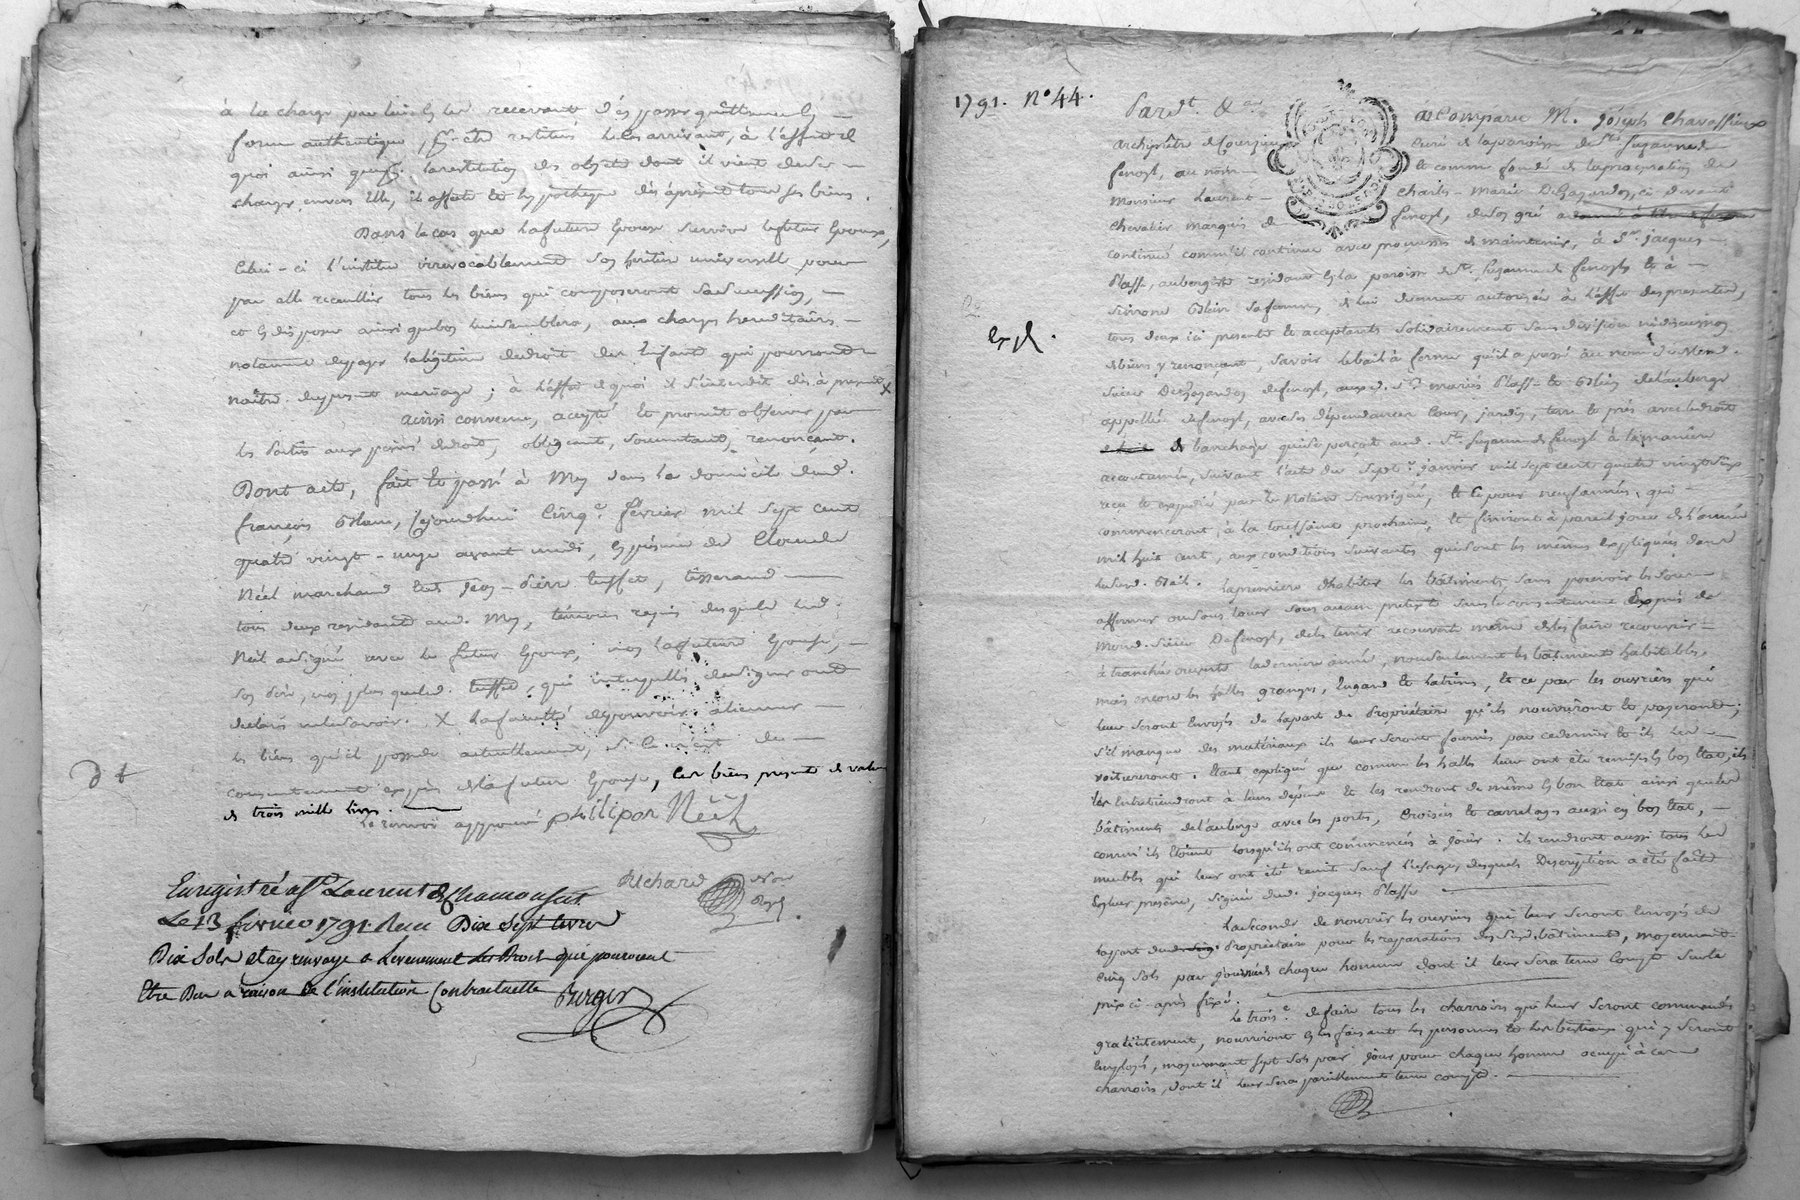 à la charge par lui en les recevant d'en passer quittance en
forme authentique,
quoi ainsi que restitution des objets dont il vient de se
charger envers elle, il affecte et hypothèque dès àprésent tous ses biens.
Dans le cas que la future Epouse survive le futur Epoux,
Celui-ci l'institue irrevocablement son heritiere universelle pour
par elle receuillir tous les biens qui composeront sa succession,
et en disposer ainsi que bon lui semblera, aux charges hereditaires
notament de payer la légitime de droit des Enfants qui pourront
naître du présent mariage; à l'effet de quoi il s'interdit dès à present X
ainsi convenu, accepté et promit observer par
les Parties aux peines de droit, obligeant, soumettant, renonçant.
Dont acte, fait et passé à Meys dans le domicile dud.
françois, cejourdhui Cinqe. fevrier mil sept cent
quatre vingt-onze avant midi, en présence de Claude
Néel marchand et Jean-Pierre tisserand
tous deux residants aud. Meys, témoins requis desquels led.
Néel a signé avec le futur Epoux, non la future Epouse,
son Père, non plus que led. qui interpellés de signer ont
déclaré ne le savoir. X la faculté de pouvoir aliener
les biens qu'il possede actuellement, si ce n'est du
consentement exprès de la future Epouse, les biens presents de valeur
de trois mille livres.
le renvoi approuvé philipon Néel
Richard Nore
Royl
Enregistré a St. Laurent de Chamousset
Le 13 fevrier 1791 Reçu Dix Sept livres
Dix Sols et ay renvoye a Levenement les Droits qui pourront
Etre Dus a raison de l'institution Contractuelle Burger
1791. N° 44.
Pardt. &a. a Comparu M. Joseph Chavassieux
archiprêtre de Courzieu Curé de la paroisse de Ste. Suzanne de
fenoyl, au nom et comme fondé de la procuration de
Monsieur Laurent Charles-Marie De Gayardon, ci-devant
chevalier marquis de fenoyl, de son gré a
continué comme il continue avec promesse de maintenir, à Sr. Jacques
Plasse, aubergiste residant en la paroisse de Ste. Suzanne de fenoyl et à
sa femme, de lui dument autorisée à l'effet des présentes,
exp.
tous deux ici presents et acceptants solidairement sans division ni discussion
de biens y renonçant, Savoir le bail à ferme qu'il a passé au nom de Mond.
Sieur De Gayardon de fenoyl, auxd. Srs. mariés Plasse et de l'auberge
appellée de fenoyl, avec ses dépendances Cour, jardin, terre et prés avec le droit
de banchage qui se perçoit aud. Ste. Suzanne de fenoyl à la manière
accoutumée, suivant l'acte du Sept. janvier mil sept cent quatre vingt six
reçu et expedié par le Notaire Soussigné, et ce pour neuf années, qui
commenceront à la toussaint prochaine, et finiront à pareil jour de l'année
mil huit cent, aux conditions suivantes qui sont les mêmes expliquées dans
ledud. Bail. La premiere d'habiter les bâtiments sans pouvoir les sous
affermer ou sous louer sous aucun pretexte sans le consentement Exprès de
Mond. Sieur De fenoyl, de les tenir recouverts même de les faire recouvrir
à tranchée ouverte la derniere année, non seulement les bâtiments habitables,
mais encore les halles granges, hugard et latrines, et ce par les ouvriers qui
leur seront Envoyés de la part du Propriétaire qu'ils nourriront et payeront;
s'il manque des matériaux ils leur seront fournis par ce dernier et ils les
voitureront. Etant expliqué que comme les halles leur ont été remises en bon Etat, ils
les Entretiendront à leurs dépens et les rendront de même en bon Etat ainsi que les
bâtiments de l'auberge avec les portes, Croisées et carrelages aussi en bon Etat,
comm'ils étoient lorsqu'ils ont commencés à jouir. ils rendront aussi tous les
meubles qui leur ont été remis sauf l'usage, desquels Description a été faite
en leur présence, signée dud. Jacques Plasse
La seconde de nourrir les ouvriers qui leur seront Envoyés de
la part dud. Propriétaire pour les reparations desd. bâtiments, moyennant
cinq sols par journée chaque homme dont il leur sera tenu Compte sur le
prix ci-après fixé.
La troise. de faire tous les charrois qui leur seront commandés
gratuitement, nourriront en les faisant les personnes et les bestiaux qui y seront
Employés, moyennant sept sols par jour pour chaque homme occupé à ces
charrois, dont il leur sera pareillement tenu compte.